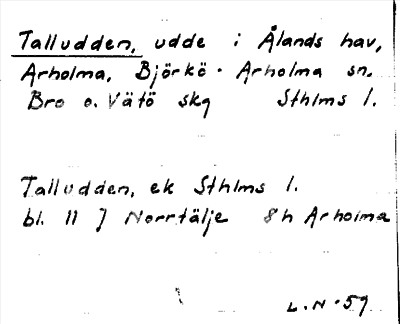 Talludden, udde i Ålands hav,
Arholma, Björkö - Arholma sn.
Bro o. Vätö skg Sthlms l.
Talludden, ek Sthlms l.
bl. 11 J Norrtälje 8h Arholma
L.N-59